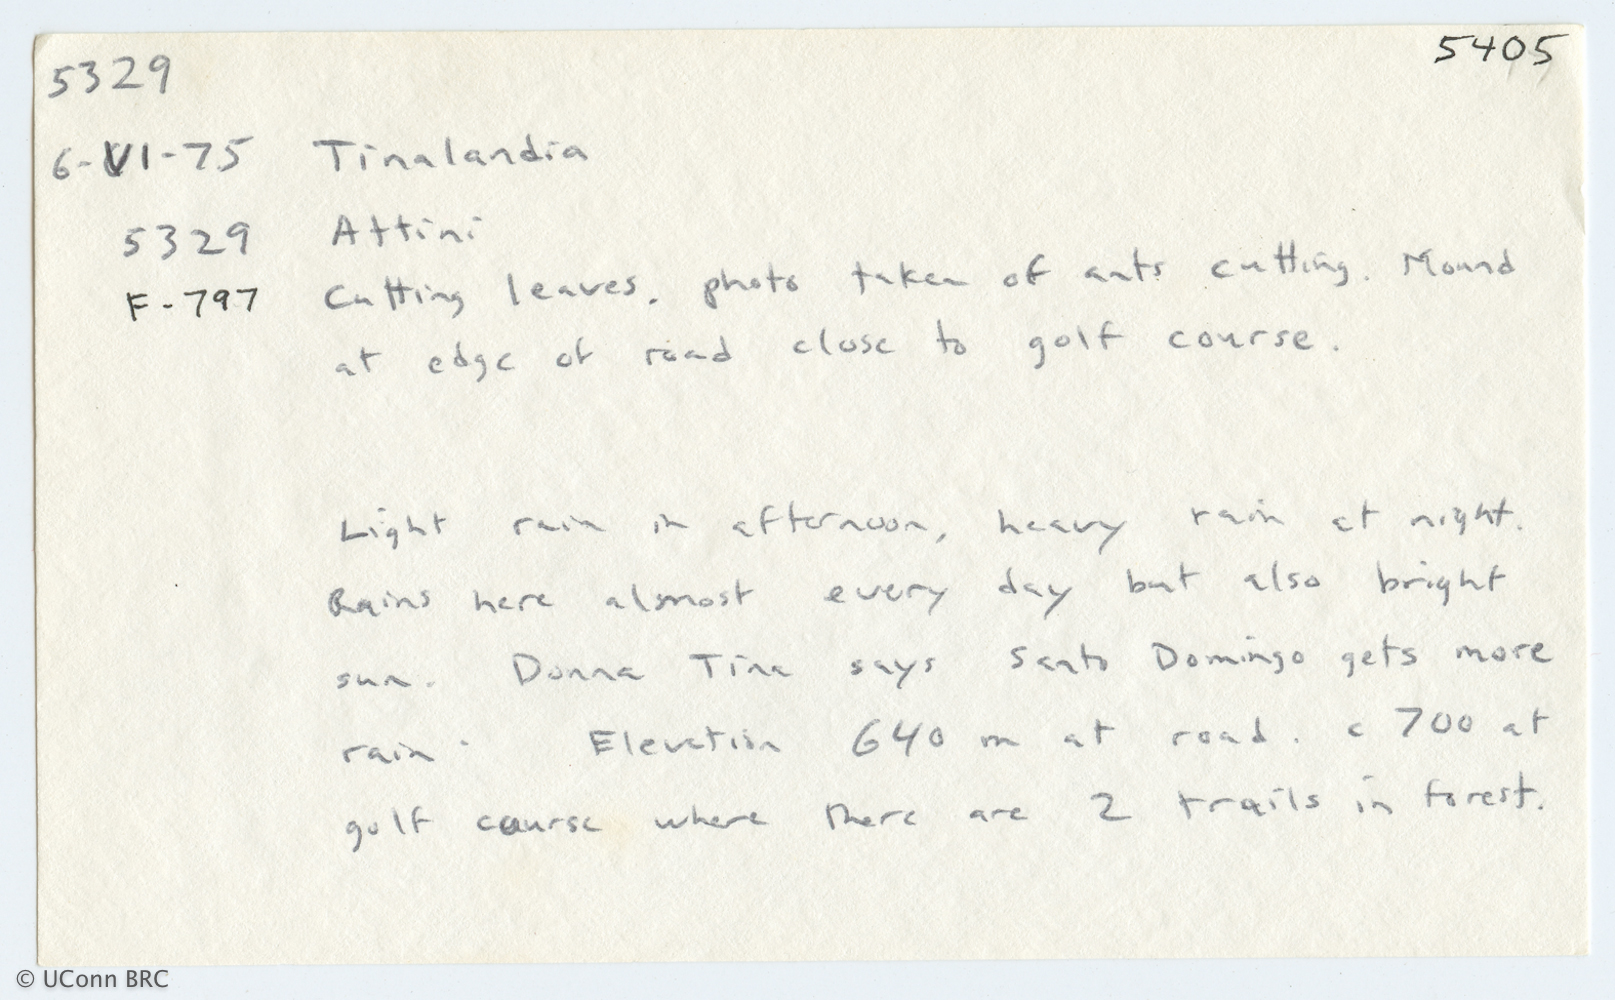 5329 5405
6-VI-75 Tinalandia
5329 Attini
F-797 Cutting leaves, photo taken of ants cutting. Mound
at edge of road close to golf course.
Light rain in afternoon, heavy rain at night.
Rains here almost every day but also bright
sun. Donna Tina says Santo Domingo gets more
rain. Elevation 640 m at road. c 700 at
golf course where there are 2 trails in forest.
© UConn BRC